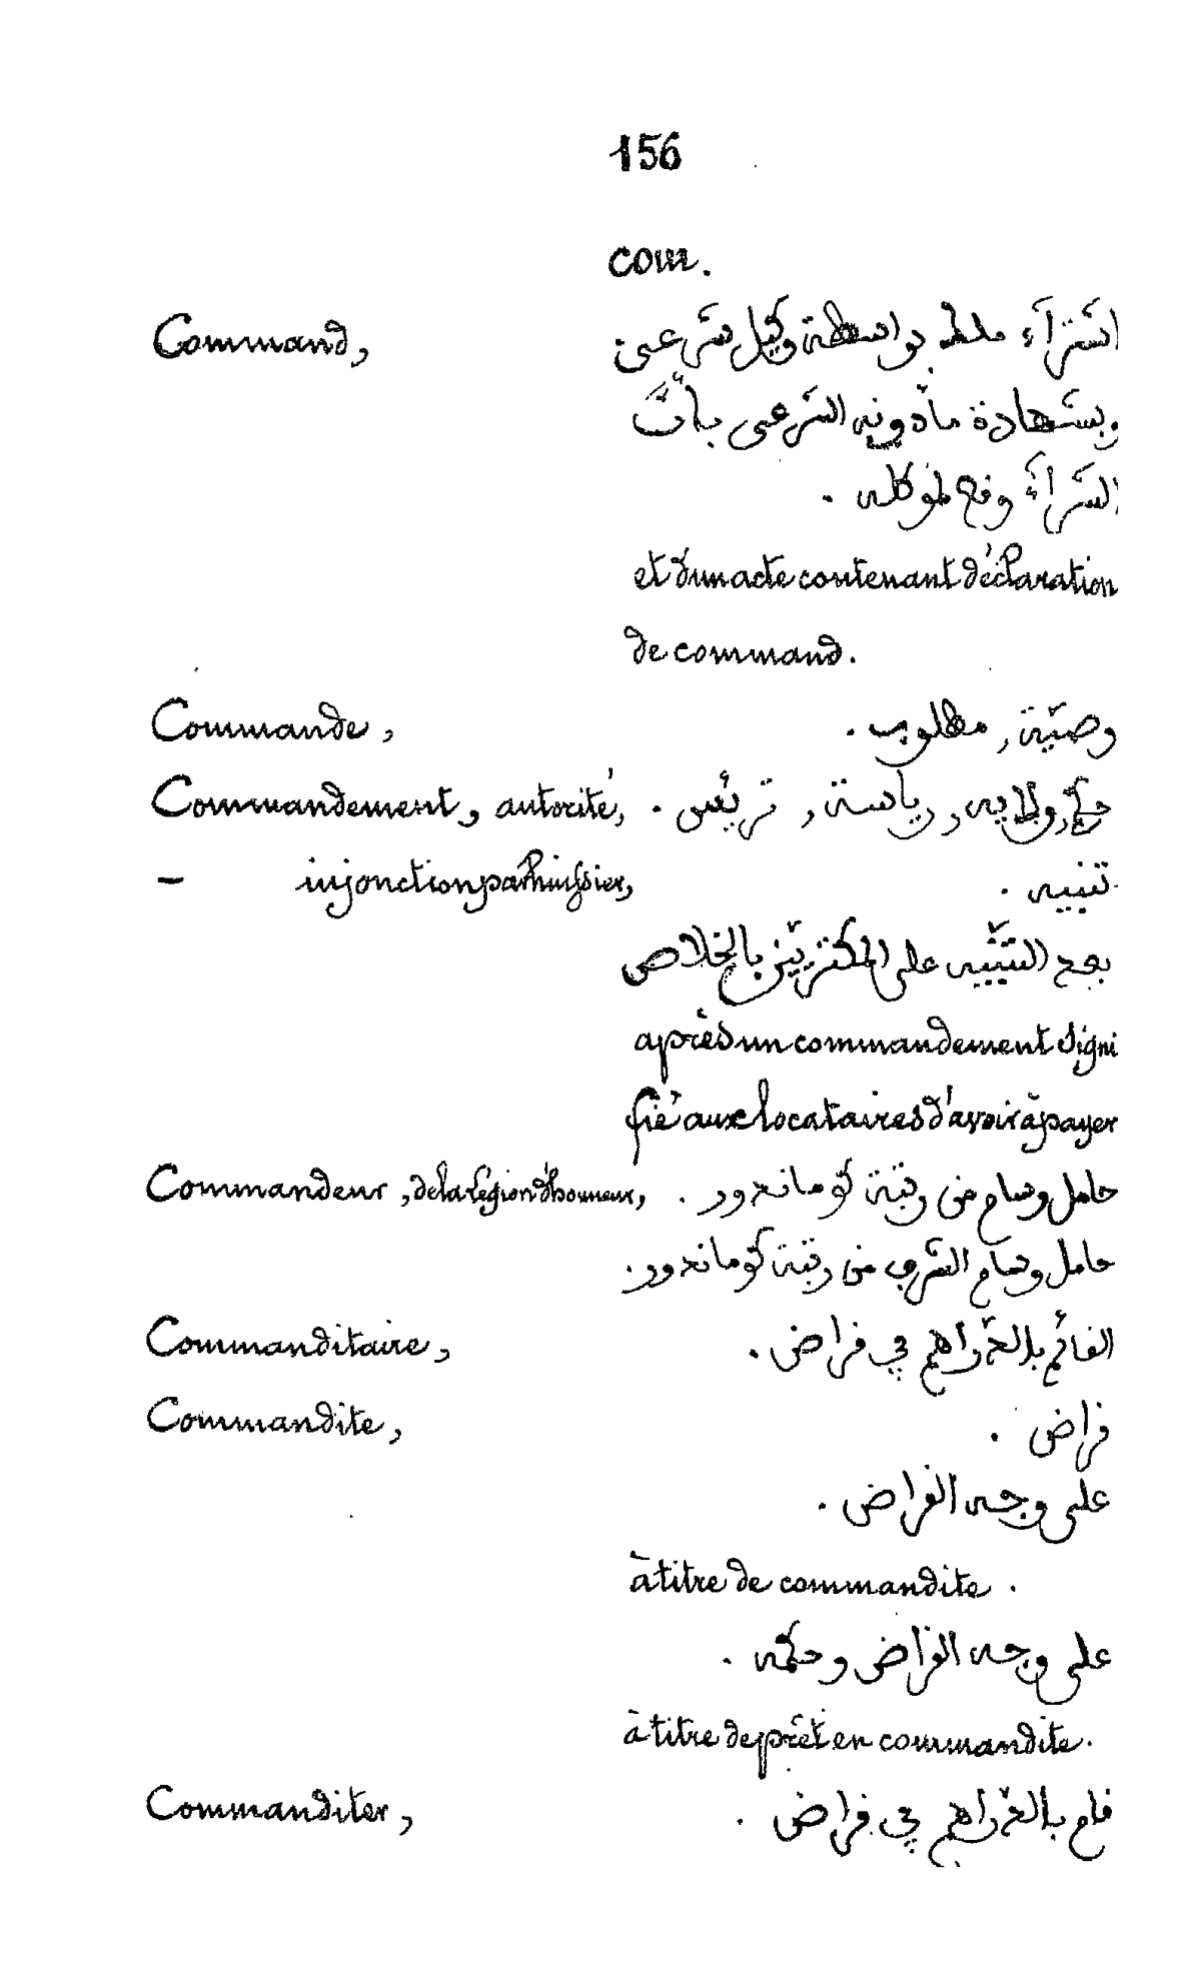 156
com.
Command, اشترآء ملك بواسطة وكيل شرعى
وبشهادة مأذونه الشرعى بأنّ
الشرآء وقع لموكله .
et d'un acte contenant déclaration
de command.
Commande, وصيّة , مطلوب .
Commandement, autorité, حكم, ولايه , رياسة , تريّس .
— injonction par huissier, تنبيه .
بعد التنبيه على المكتريّين بالخلاص
après un commandement signi
fié aux locataires d'avoir à payer
Commandeur, de la légion d'honneur, حامل وسام من رتبة كوماندور .
حامل وسام الشرف من رتبة كوماندور.
Commanditaire, القائم بالدّراهم في قراض .
Commandite, قراض .
على وجه القراض .
à titre de commandite .
على وجه القراض وحكمه .
à titre de prêt en commandite.
Commanditer, قام بالدّراهم في قراض .